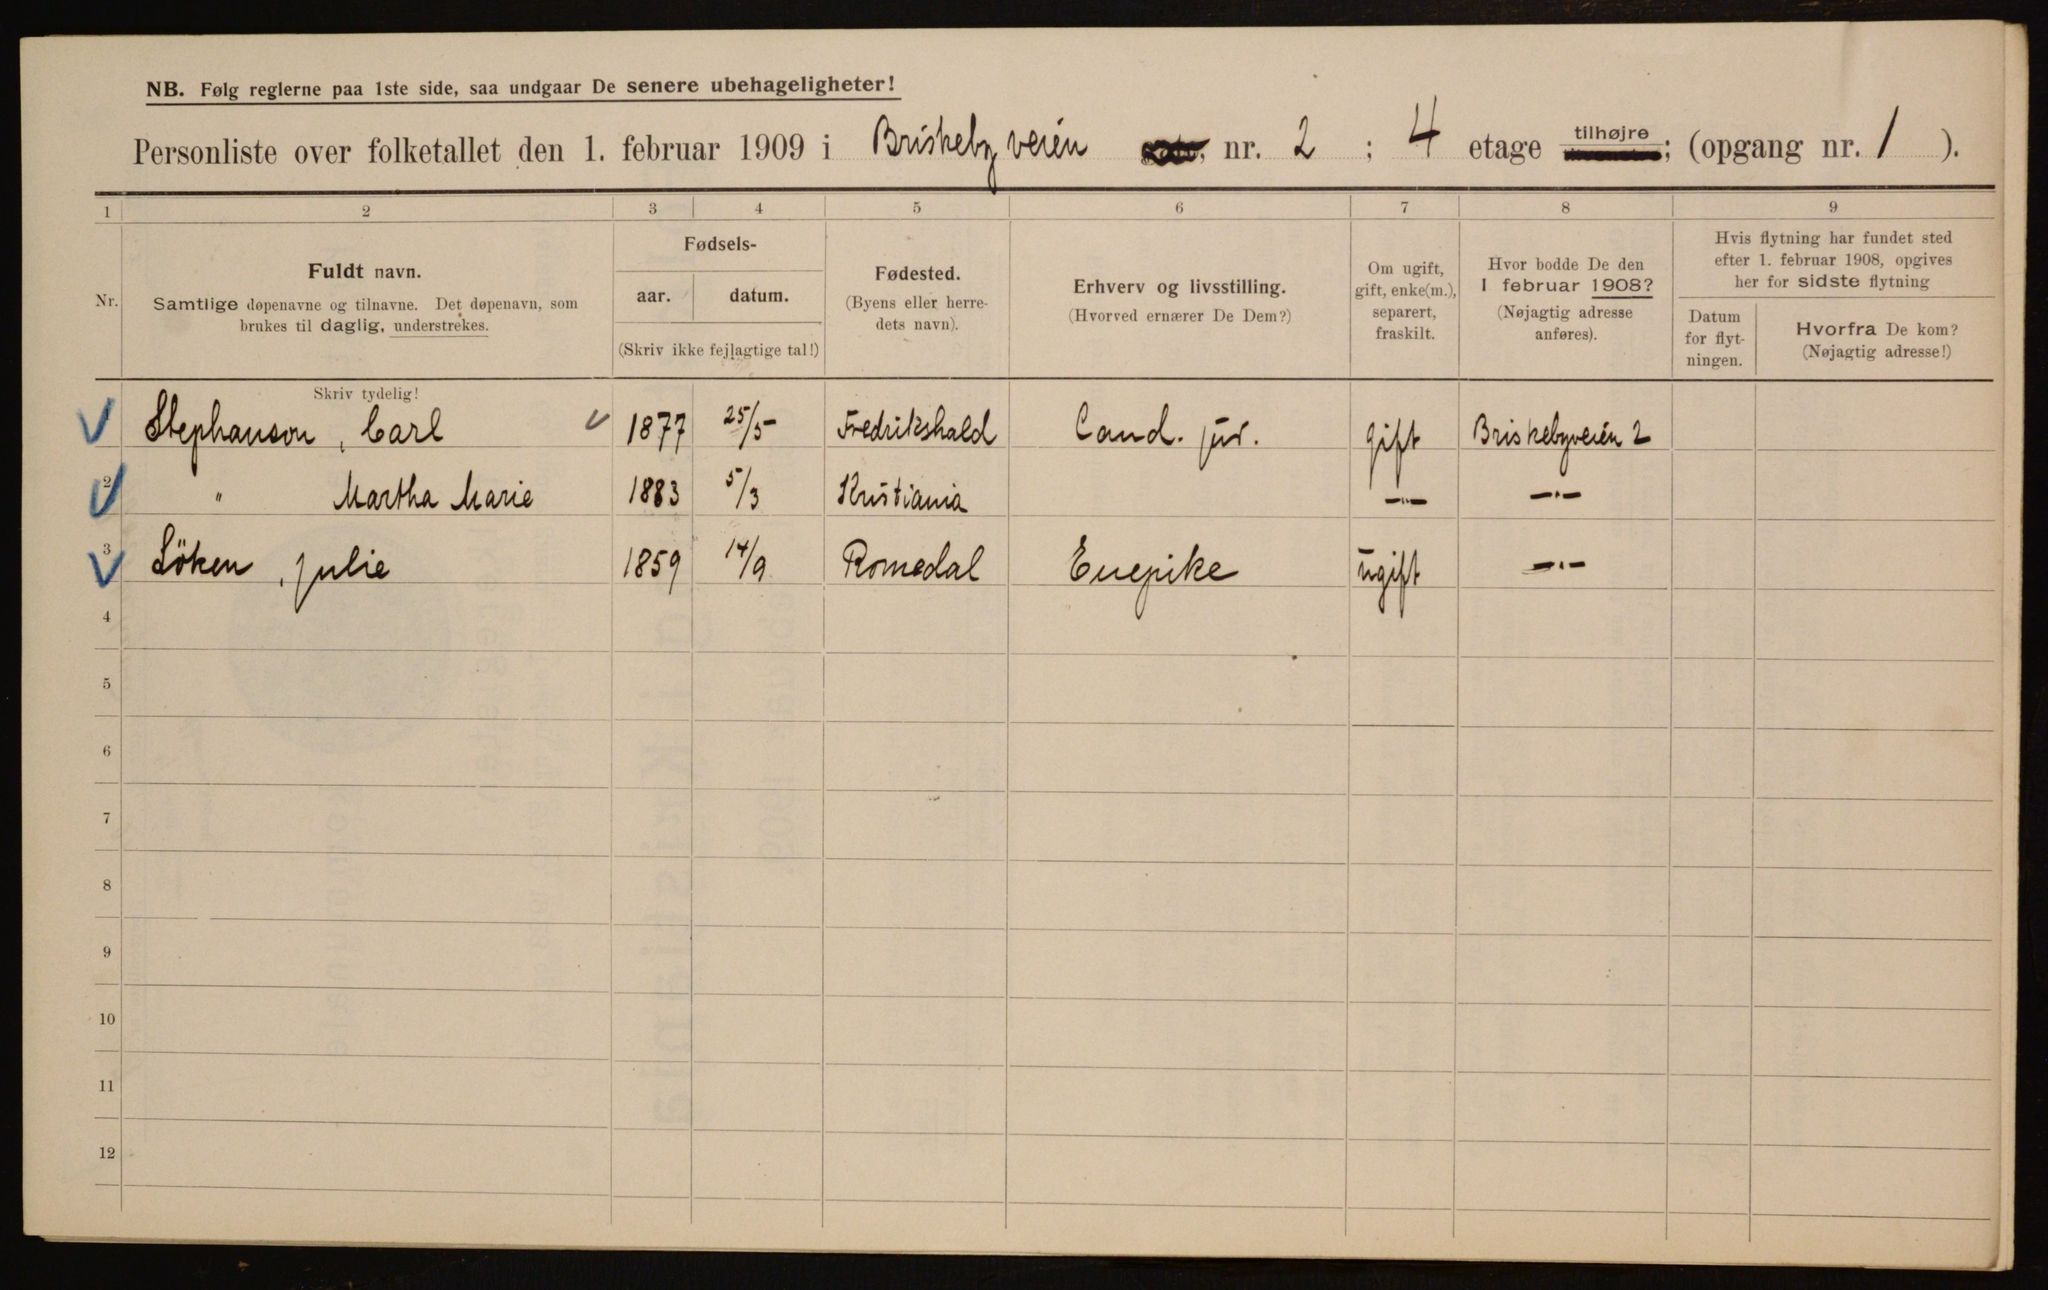 NB. Følg reglerne paa 1ste side, saa undgaar De senere ubehageligheter!
Personliste over folketallet den 1. februar 1909 i Briskebyveien nr. 2 ; 4 etage tilhøjre ; (opgang nr. 1 ).
1 2 3 4 5 6 7 8 9
Nr.
Fuldt navn.
Samtlige døpenavne og tilnavne. Det døpenavn, som
brukes til daglig, understrekes.
Fødsels-
aar. datum.
(Skriv ikke fejlagtige tal!)
Fødested.
(Byens eller herre-
dets navn).
Erhverv og livsstilling.
(Hvorved ernærer De Dem?)
Om ugift,
gift, enke(m.),
separert,
fraskilt.
Hvor bodde De den
1 februar 1908?
(Nøjagtig adresse
anføres).
Hvis flytning har fundet sted
efter 1. februar 1908, opgives
her for sidste flytning
Datum
for flyt-
ningen.
Hvorfra De kom?
(Nøjagtig adresse!)
Skriv tydelig!
Stephanson, Carl 1877 25/5 Fredrikshald Cand. jur. gift Briskebyveien 2
2 " Martha Marie 1883 5/3 Kristiania —"— —"—
3 Söken, Julie 1859 14/9 Romedal Enepike ugift —"—
4
5
6
7
8
9
10
11
12